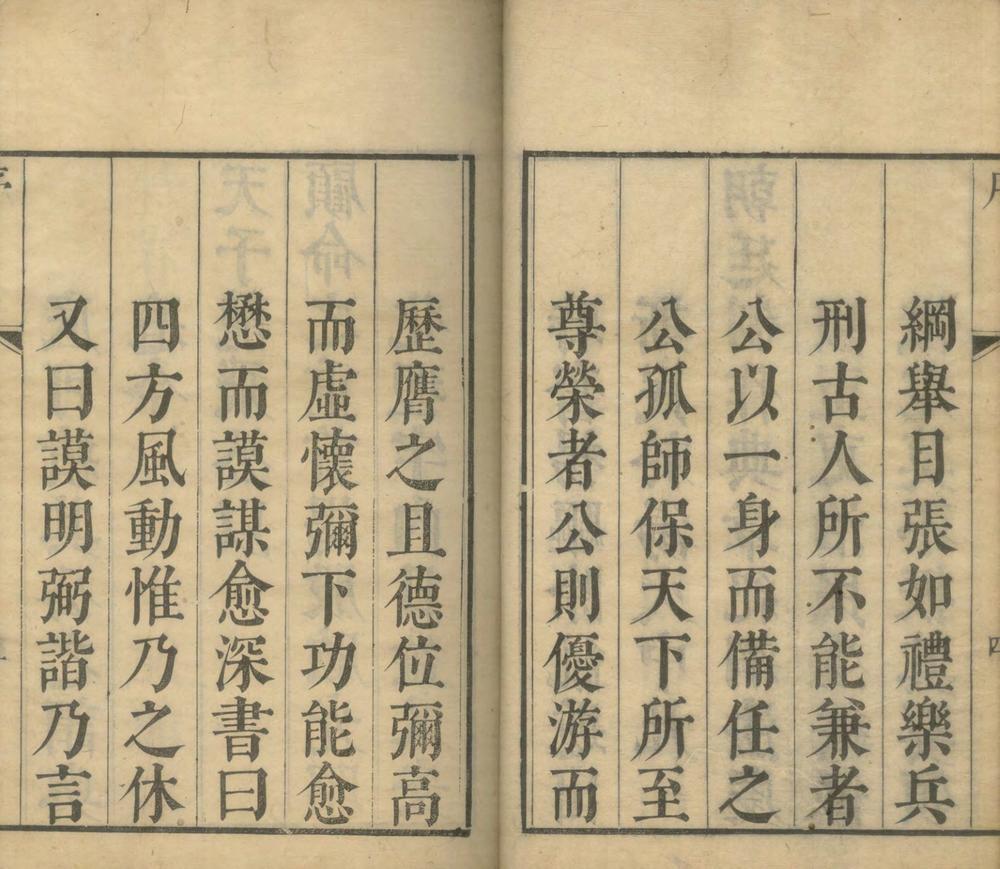 綱舉目張如禮樂兵
刑古人所不能兼者
公以一身而備任之
公孤師保天下所至
尊榮者公則優游而
歷膺之且德位彌高
而虛懷彌下功能愈
懋而謨謀愈深書曰
四方風動惟乃之休
又曰謨明弼諧乃言